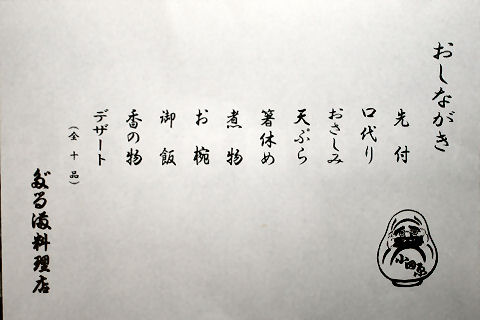 おしながき
先付
口代り
おさしみ
天ぷら
箸休め
煮物
お椀
御飯
香の物
デザート
（全十品）
だるま料理店
小田原